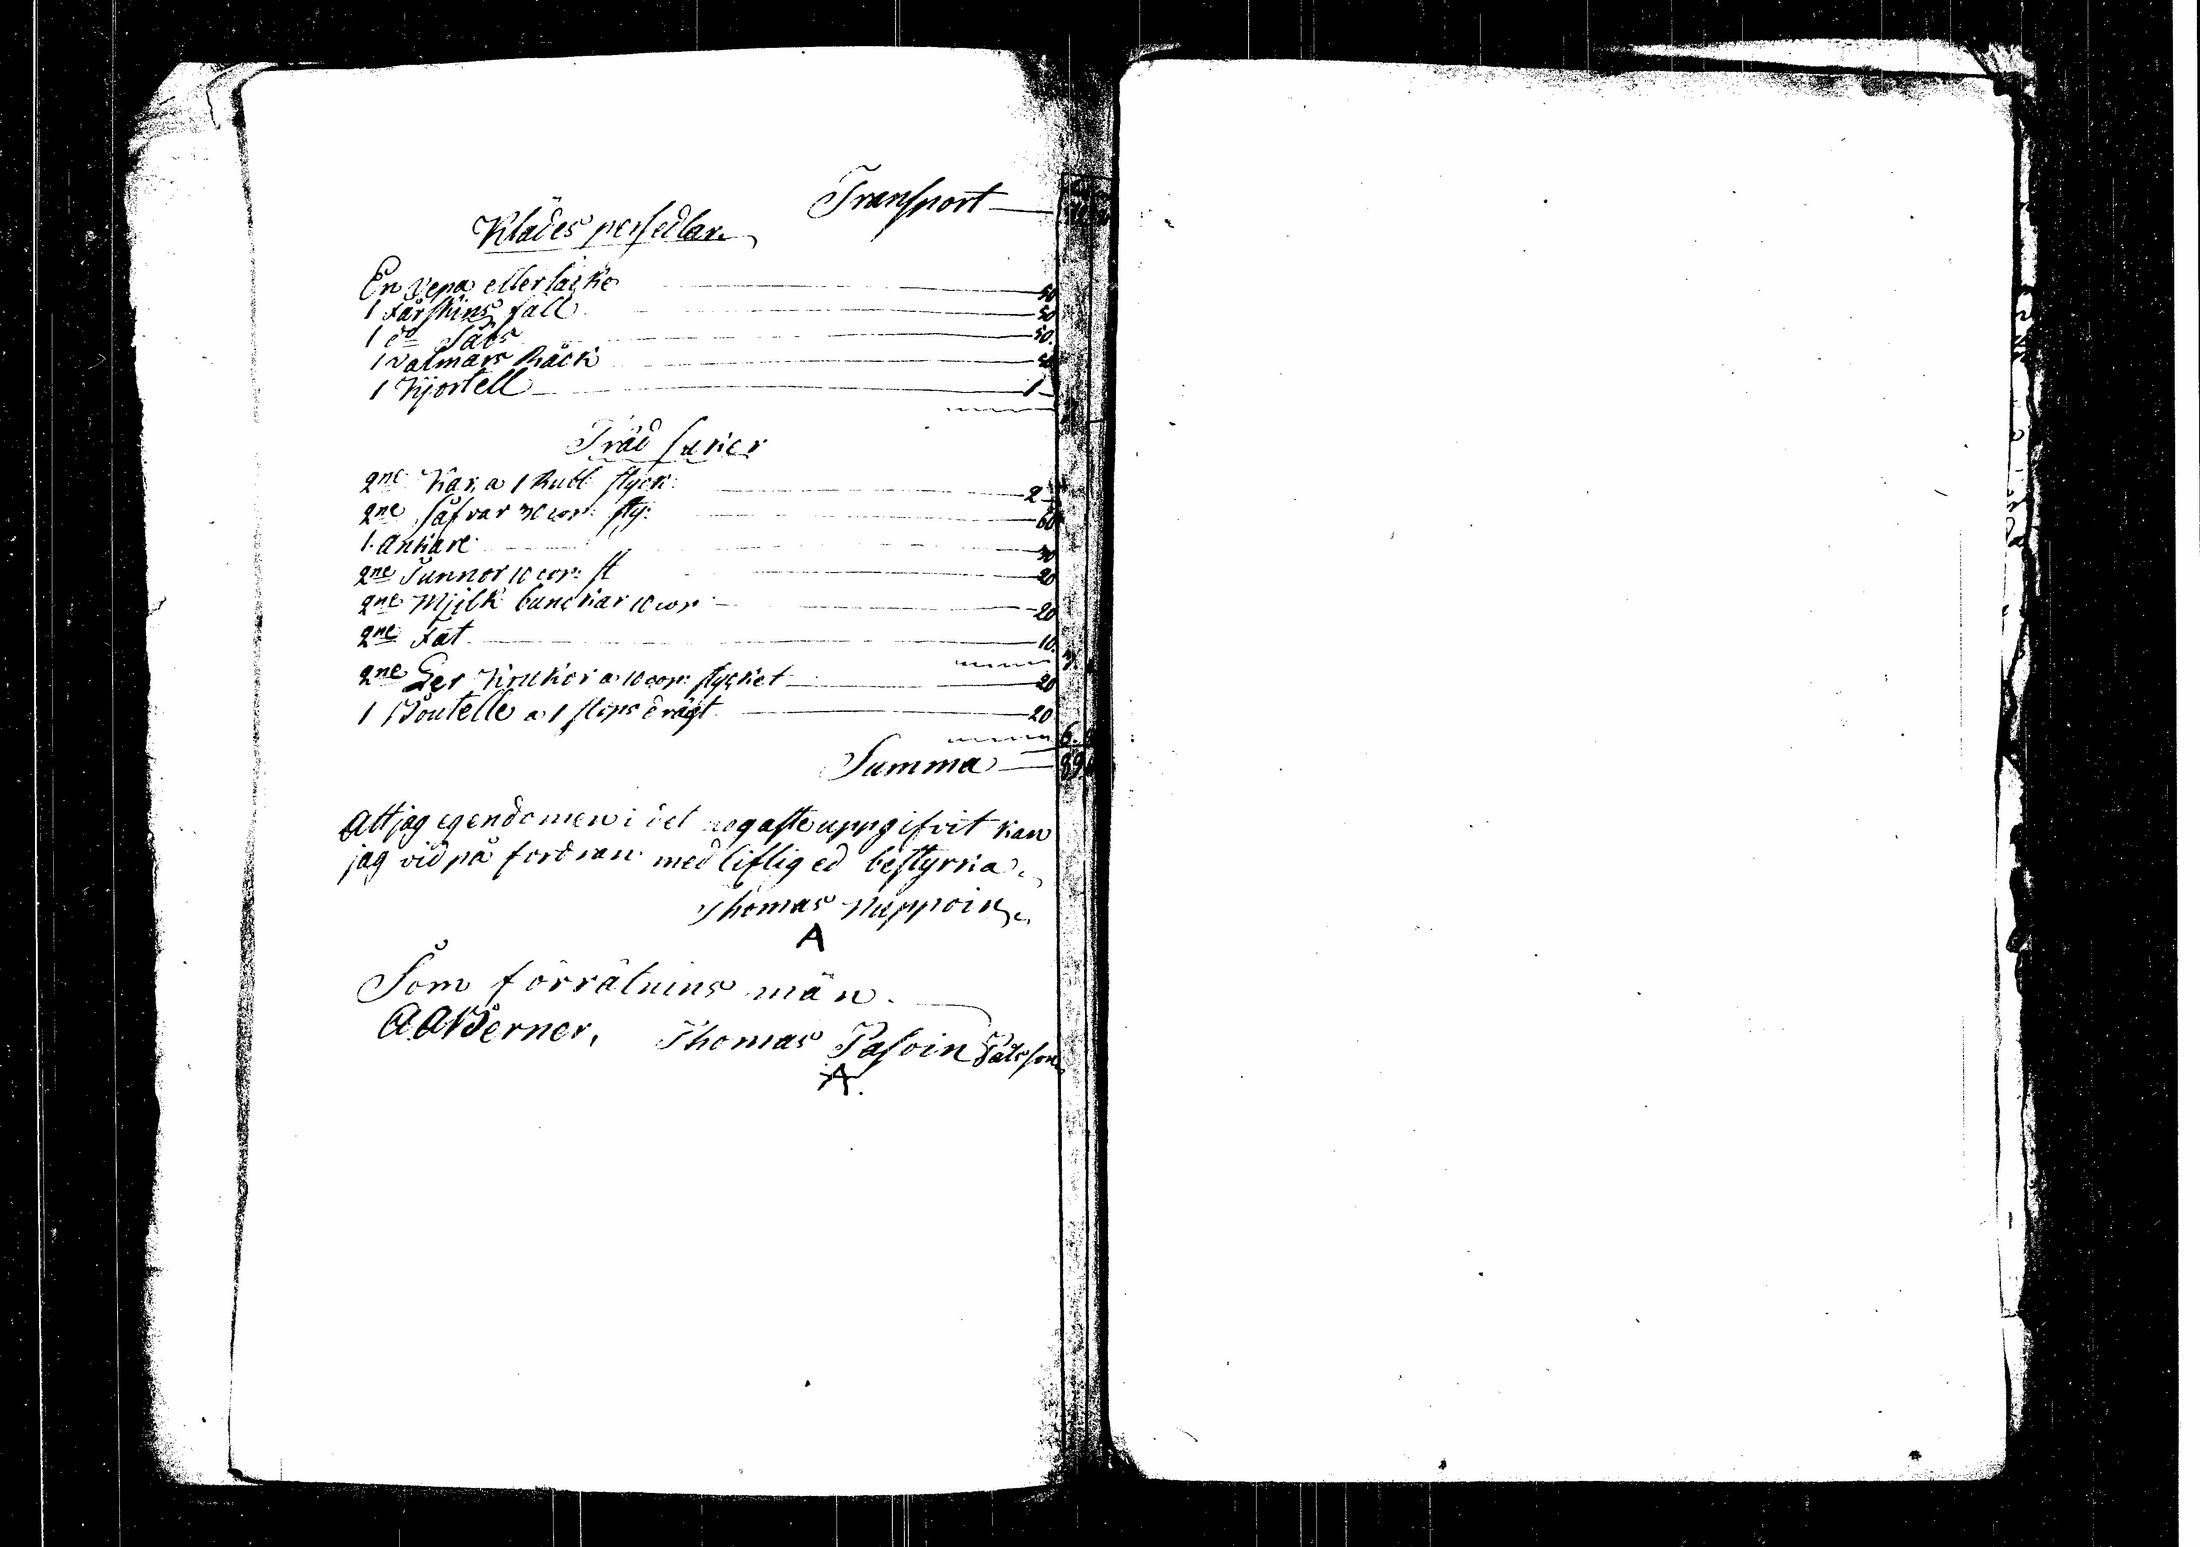 Transport
Klädes persedlar
En Vepa eller täcke 50
1 Fårskins fäll 50
1 do 50.
1 Valmars Råck
1 Kjortell 1
Träd saker
2ne Kar a 1 Rubl styck: 2
2ne såfvar 30 cop: sty: 60
1. ankare 30
2ne Tunnor 10 cop: st 20
2ne Mjölk bunckar 10 cop 20
2ne Fat 10.
2ne Ler Krukor a 10 cop: stycket 20
1 Boutelle a 1 stops drägt 20
Summa 89
Att jag egendomen i det nogaste uppgifvit kan
jag vid på fordran med liflig ed bestyrka.
Thomas Nuppoin
A
Som förrätnins män.
A. A Berner, Thomas Pasoin Påls son
A.